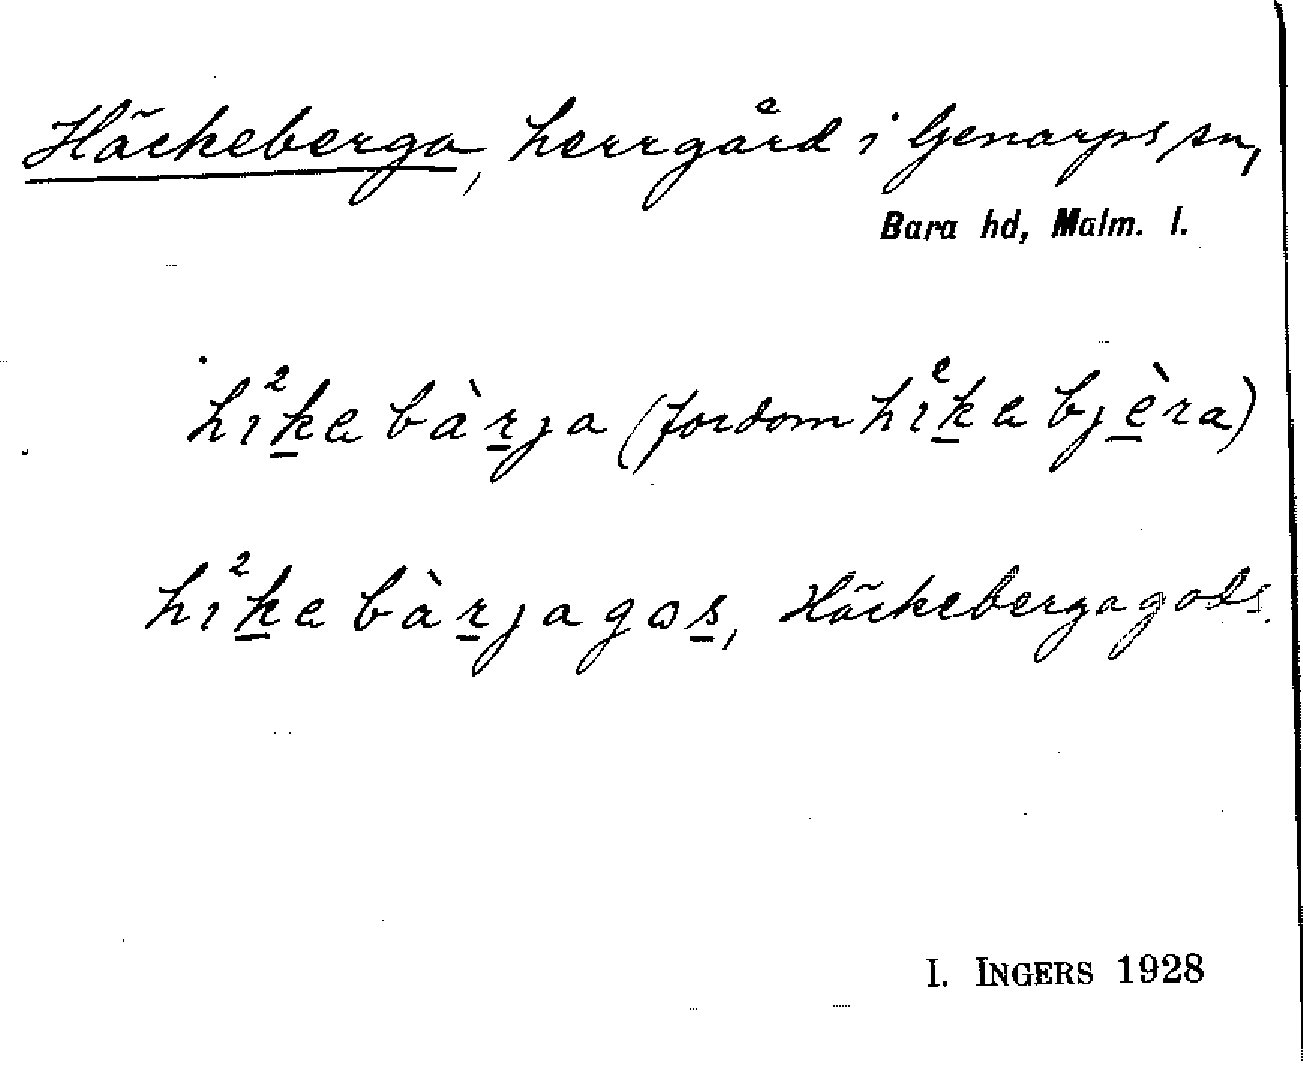 Häckeberga, herrgård i Genarps sn,
Bara hd, Malm. l.
hı²ke bàrja (fordom hı²ke bjèra)
hı²ke bàrjagos, Häckebergagods.
I. INGERS 1928